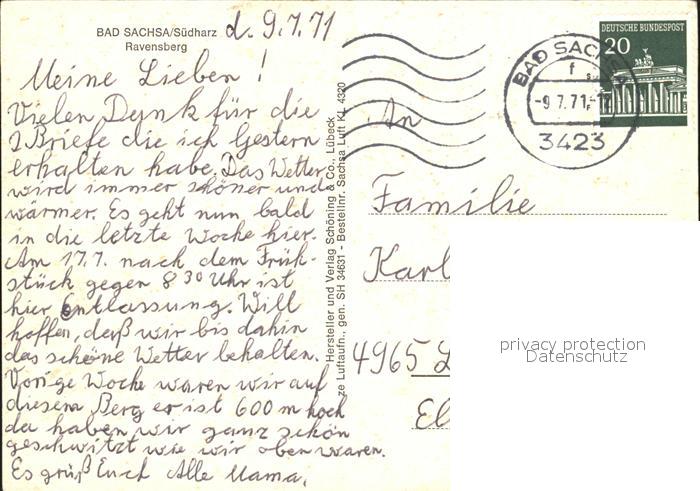 BAD SACHSA/Südharz
Ravensberg
d. 9.7.71
Meine Lieben!
Vielen Dank für die
2 Briefe die ich Gestern
erhalten habe. Das Wetter
wird immer schöner und
wärmer. Es geht nun bald
in die letzte Woche hier.
Am 17.7. nach dem Früh-
stück gegen 8 30 Uhr ist
hier Entlassung. Will
hoffen, daß wir bis dahin
das schöne Wetter behalten.
Vorige Woche waren wir auf
diesem Berg er ist 600 m hoch
da haben wir ganz schön
geschwitzt wie wir oben waren.
Es grüßt Euch Alle Mama.
Hersteller und Verlag Schöning & Co., Lübeck
ze Luftaufn., gen. SH 34631 - Bestellnr. Sachsa Luft KL 4320
DEUTSCHE BUNDESPOST
20
BAD SACHSA
f
-9.7.71.-17
3423
An
Familie
Karl
4965 L
El
privacy protection
Datenschutz